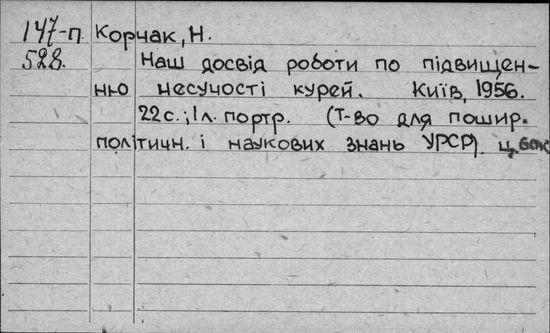 147-п Корчак, Н.
528. Наш досвід роботи по підвищен-
ню несучості курей. Київ, 1956.
22с.; 1л. портр. (Т-во для пошир.
політичн. і наукових знань УРСР) ц. 60к